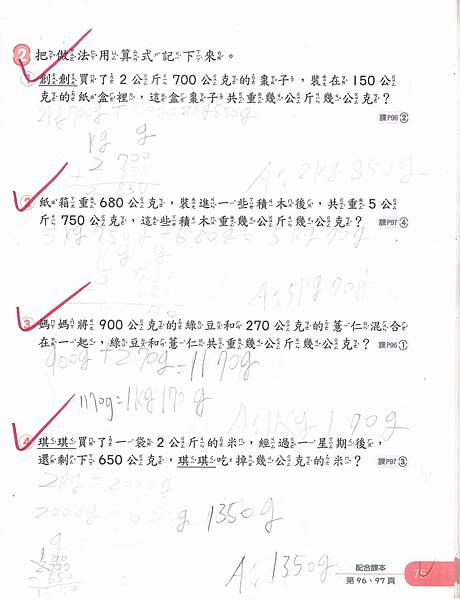 2 把做法用算式記下來。
① 創創買了 2 公斤 700 公克的棗子，裝在 150 公
克的紙盒裡，這盒棗子共重幾公斤幾公克？
課P96 ②
2kg700g+150g=2kg850g
kg g
2 700
+ 150
2 850
A：2kg850g
② 紙箱重 680 公克，裝進一些積木後，共重 5 公
斤 750 公克，這些積木重幾公斤幾公克？
課P97 ④
5kg750g-680g=5kg70g
A：5kg70g
③ 媽媽將 900 公克的綠豆和 270 公克的薏仁混合
在一起，綠豆和薏仁共重幾公斤幾公克？
課P96 ①
900g+270g=1170g
1170g=1kg170g
A：1kg170g
④ 琪琪買了一袋 2 公斤的米，經過一星期後，
還剩下 650 公克，琪琪吃掉幾公克的米？
課P97 ③
2kg=2000g
2000g-650g 1350g
g
2000
- 650
1350
A：1350g
配合課本
第 96、97 頁
75